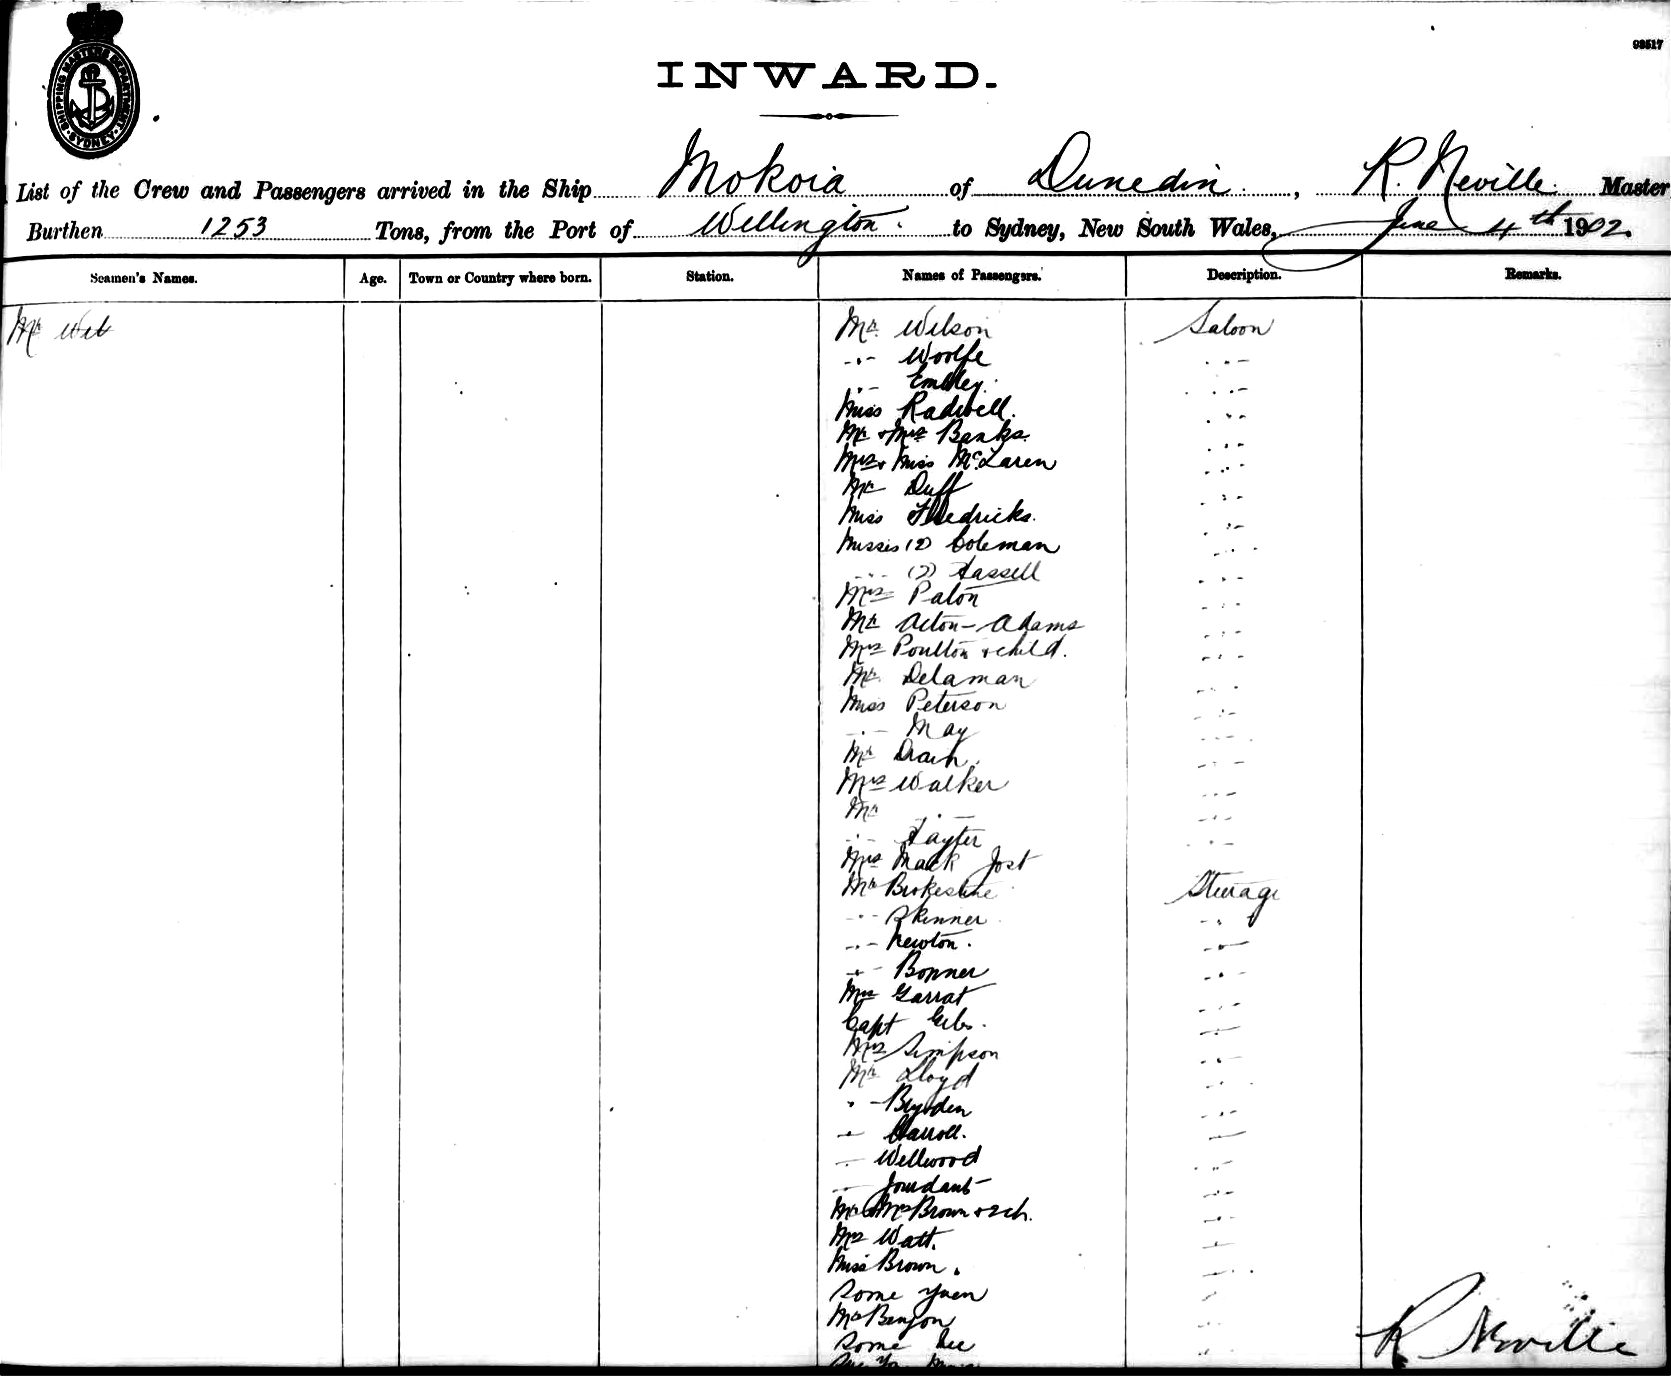 93517
SHIPPING MASTERS DEPARTMENT
SYDNEY
INWARD.
List of the Crew and Passengers arrived in the Ship Mokoia of Dunedin, R. Neville Master
Burthen 1253 Tons, from the Port of Wellington. to Sydney, New South Wales, June 4th 1902.
Seamen's Names. Age. Town or Country where born. Station. Names of Passengers. Description. Remarks.
Mr Wil Mr. Wilson Saloon
Woolfe
Embley.
Miss Radwell.
Mr & Mrs Banks.
Mrs & Miss McLaren
Mr Duff
Miss Fredricks.
Misses (2) Coleman
(2) Hassell
Mrs Paton
Mr Acton-Adams
Mrs Poulton & child.
Mr. Delaman
Miss Peterson
May
Mr Drain.
Mrs Walker
Mr
Tayter
Mrs Mack Jost
Mr Steerage
Skinner
Newton.
Bonner
Mrs Garrat
Capt
Mrs Simpson
Mr Lloyd
Bryden
Carroll.
Wellwood
Jourdant
Mr & Mrs Brown & 2 ch.
Mrs Watt.
Miss Brown.
Some Yuen
Mr Benson
Some Lee
R Neville